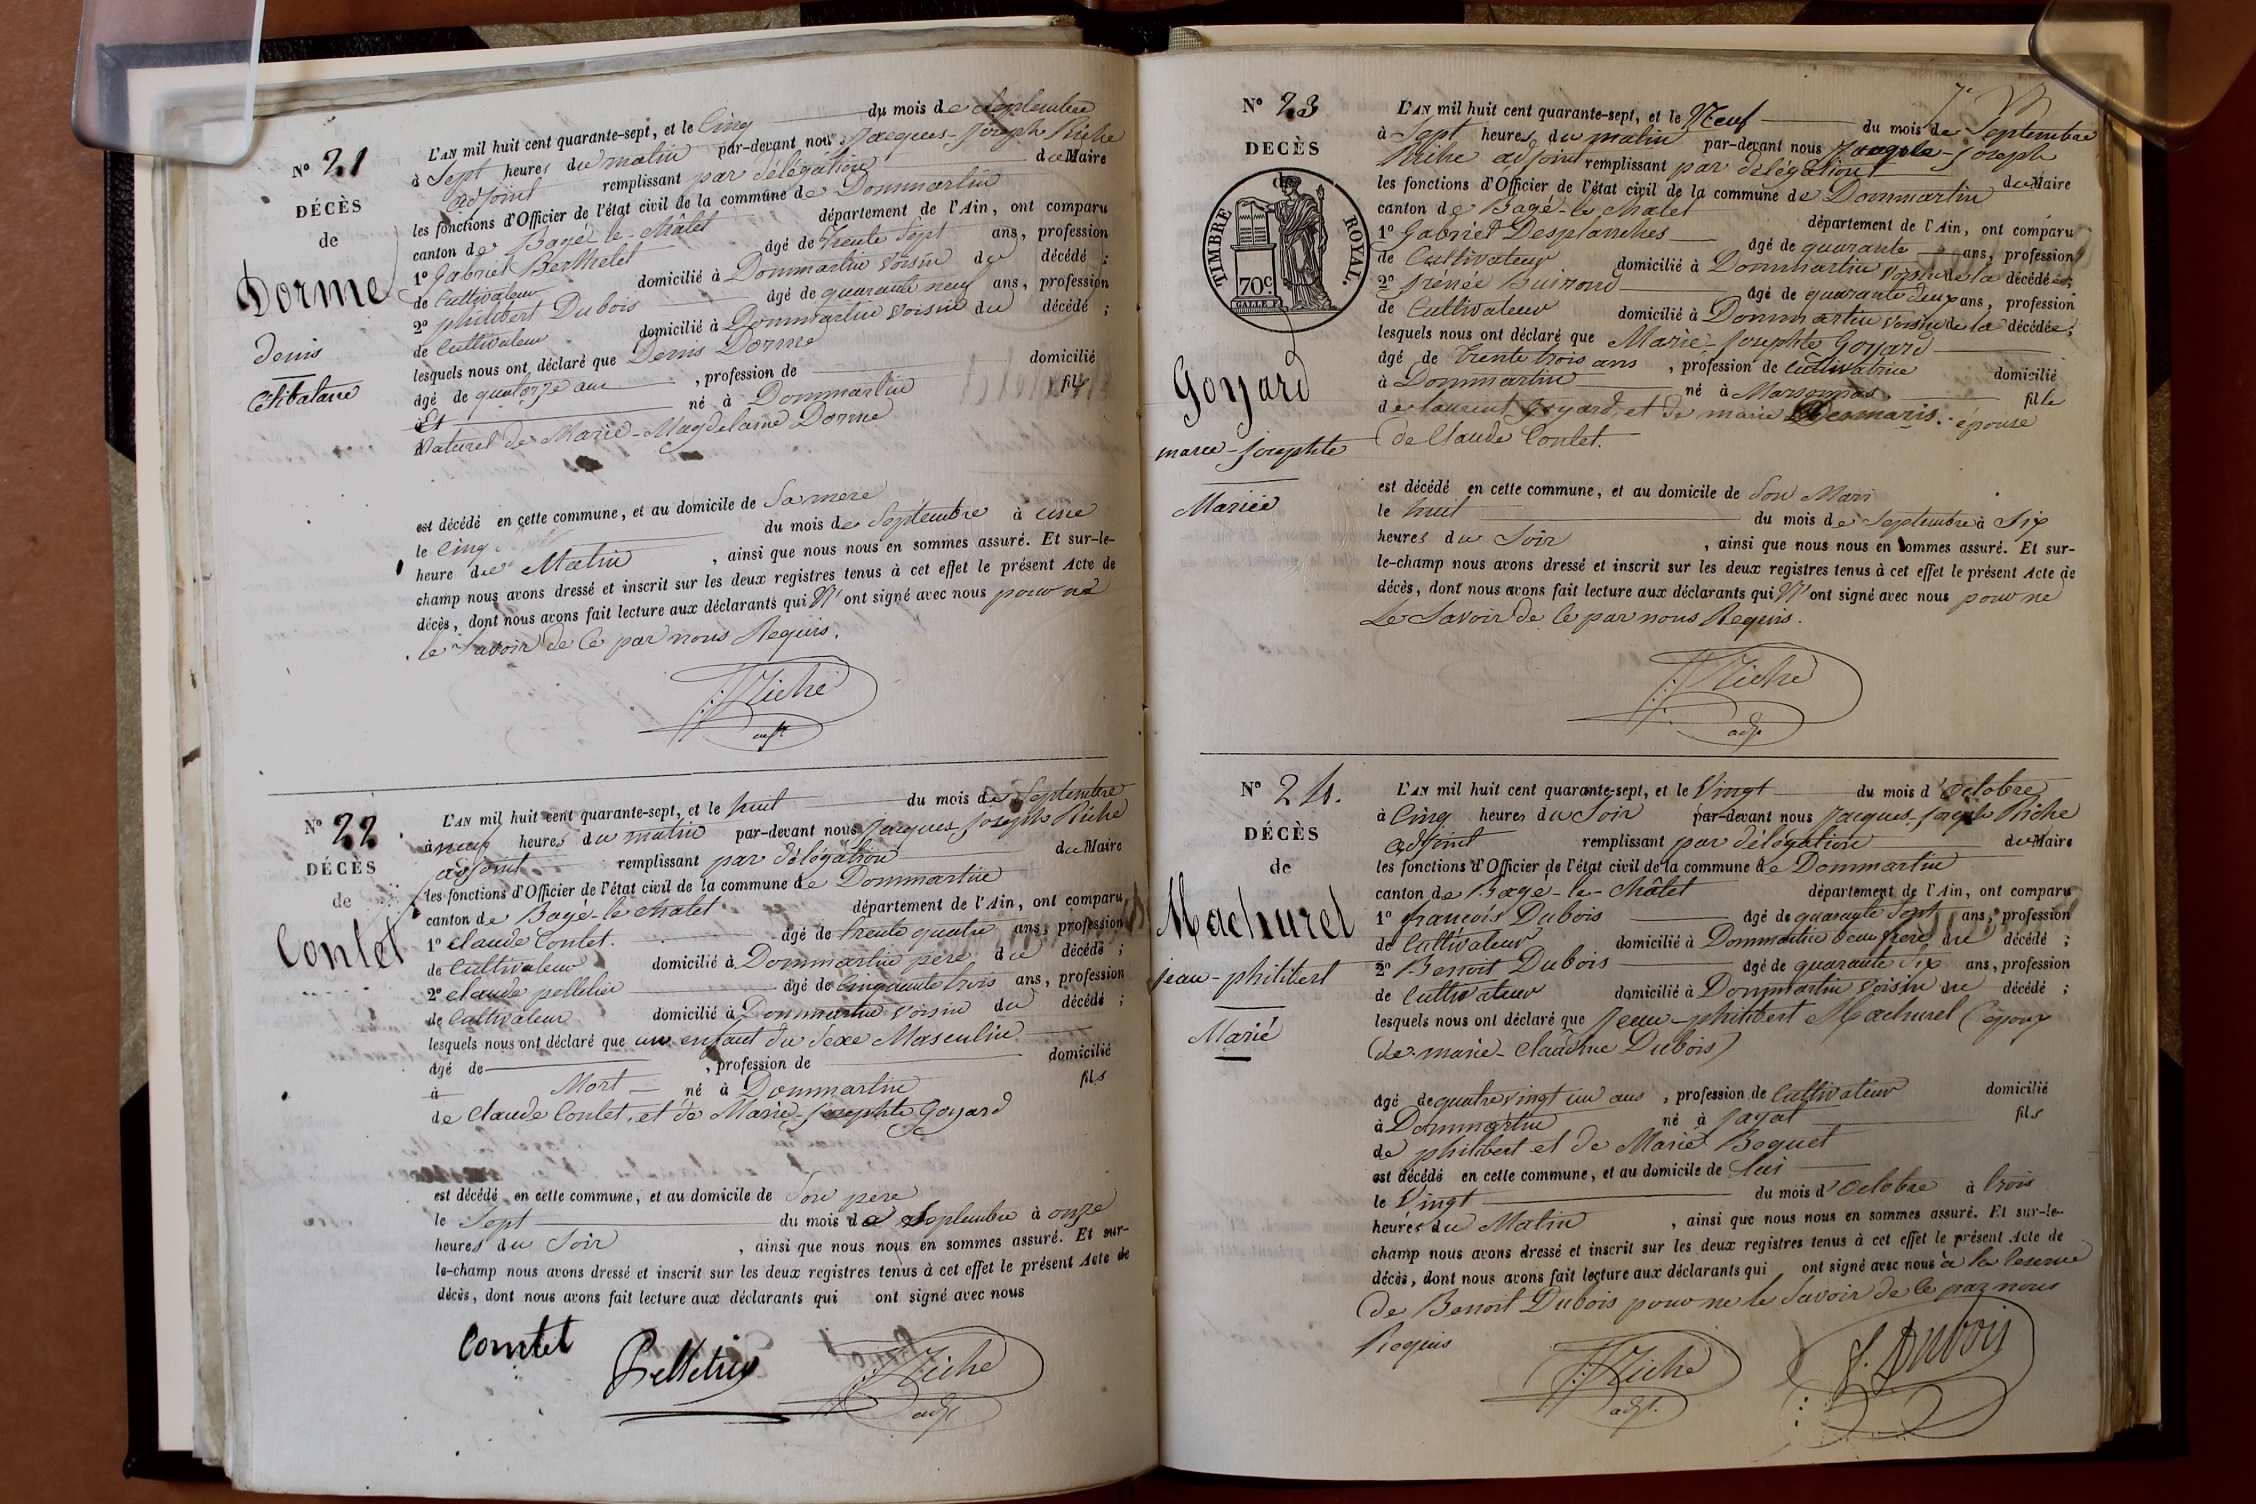 N° 21
DÉCÈS
de
Dorme
Denis
Célibataire
L'AN mil huit cent quarante-sept, et le Cinq du mois de Septembre
à Sept heures du matin par-devant nous Jacques-Joseph Riche
adjoint remplissant par délégation du Maire
les fonctions d'Officier de l'état civil de la commune de Dommartin
canton de Bagé-le-Châtel département de l'Ain, ont comparu
1° Gabriel Berthelet âgé de trente Sept ans, profession
de Cultivateur domicilié à Dommartin voisin du décédé ;
2° philibert Dubois âgé de quarante neuf ans, profession
de Cultivateur domicilié à Dommartin voisin du décédé ;
lesquels nous ont déclaré que Denis Dorme
âgé de quatorze ans , profession de domicilié
à né à Dommartin fils
Naturel de Marie-Magdelaine Dorme
est décédé en cette commune, et au domicile de Sa mere
le Cinq du mois de Septembre à une
heure du Matin , ainsi que nous nous en sommes assuré. Et sur-le-
champ nous avons dressé et inscrit sur les deux registres tenus à cet effet le présent Acte de
décès, dont nous avons fait lecture aux déclarants qui N'ont signé avec nous pour ne
le Savoir de Ce par nous Requis.
JJ Riche
adjt
N° 22
DÉCÈS
de
Contet
L'AN mil huit cent quarante-sept, et le huit du mois de Septembre
à neuf heures du matin par-devant nous Jacques Joseph Riche
adjoint remplissant par délégation du Maire
les fonctions d'Officier de l'état civil de la commune de Dommartin
canton de Bagé-le-chatel département de l'Ain, ont comparu
1° Claude Contet. âgé de trente quatre ans, profession
de Cultivateur domicilié à Dommartin père du décédé ;
2° Claude pelletier âgé de Cinquante trois ans, profession
de Cultivateur domicilié à Dommartin voisin du décédé ;
lesquels nous ont déclaré que un enfant du Sexe Masculin
âgé de , profession de domicilié
à Mort né à Dommartin fils
de Claude Contet, et de Marie-Josephte Goyard
est décédé en cette commune, et au domicile de Son père
le Sept du mois de Septembre à onze
heures du Soir , ainsi que nous nous en sommes assuré. Et sur-
le-champ nous avons dressé et inscrit sur les deux registres tenus à cet effet le présent Acte de
décès, dont nous avons fait lecture aux déclarants qui ont signé avec nous
Comtet Pelletier JJ Riche
adjt
7e
N° 23
DÉCÈS
de
TIMBRE ROYAL.
70c.
Goyard
marie-Josephte
Mariée
L'AN mil huit cent quarante-sept, et le Neuf du mois de Septembre
à Sept heures du matin par-devant nous Jacques-Joseph
Riche adjoint remplissant par délégation du Maire
les fonctions d'Officier de l'état civil de la commune de Dommartin
canton de Bagé-le-Chatel département de l'Ain, ont comparu
1° Gabriel Desplanches âgé de quarante ans, profession
de Cultivateur domicilié à Dommartin voisin de la décédée ;
2° âgé de quarante deux ans, profession
de Cultivateur domicilié à Dommartin voisin de la décédée ;
lesquels nous ont déclaré que Marie-Josephte Goyard
âgé de trente trois ans , profession de Cultivatrice domicilié
à Dommartin né à Marsonnas fille
de laurent Goyard, et de marie Desmaris. épouse
de Claude Contet.
est décédé en cette commune, et au domicile de Son Mari
le huit du mois de Septembre à Six
heures du Soir , ainsi que nous nous en sommes assuré. Et sur-
le-champ nous avons dressé et inscrit sur les deux registres tenus à cet effet le présent Acte de
décès, dont nous avons fait lecture aux déclarants qui N'ont signé avec nous pour ne
Le Savoir de Ce par nous Requis.
JJ Riche
adjt
N° 24.
DÉCÈS
de
Machurel
jean-philibert
Marié
L'AN mil huit cent quarante-sept, et le Vingt du mois d'Octobre
à Cinq heures du Soir par-devant nous Jacques-Joseph Riche
adjoint remplissant par délégation du Maire
les fonctions d'Officier de l'état civil de la commune de Dommartin
canton de Bagé-le-Châtel département de l'Ain, ont comparu
1° françois Dubois âgé de quarante Sept ans, profession
de Cultivateur domicilié à Dommartin beau frere du décédé ;
2° Benoit Dubois âgé de quarante Six ans, profession
de Cultivateur domicilié à Dommartin voisin du décédé ;
lesquels nous ont déclaré que Jean-philibert Machurel (époux
de marie-Claudine Dubois)
âgé de quatre vingt un ans , profession de Cultivateur domicilié
à Dommartin né à Jayat fils
de philibert et de Marie Boquet
est décédé en cette commune, et au domicile de lui
le Vingt du mois d'Octobre à trois
heures du Matin , ainsi que nous nous en sommes assuré. Et sur-le-
champ nous avons dressé et inscrit sur les deux registres tenus à cet effet le présent Acte de
décès, dont nous avons fait lecture aux déclarants qui ont signé avec nous à la Reserve
de Benoit Dubois pour ne le Savoir de Ce par nous
Requis
JJ Riche f. Dubois
adjt.